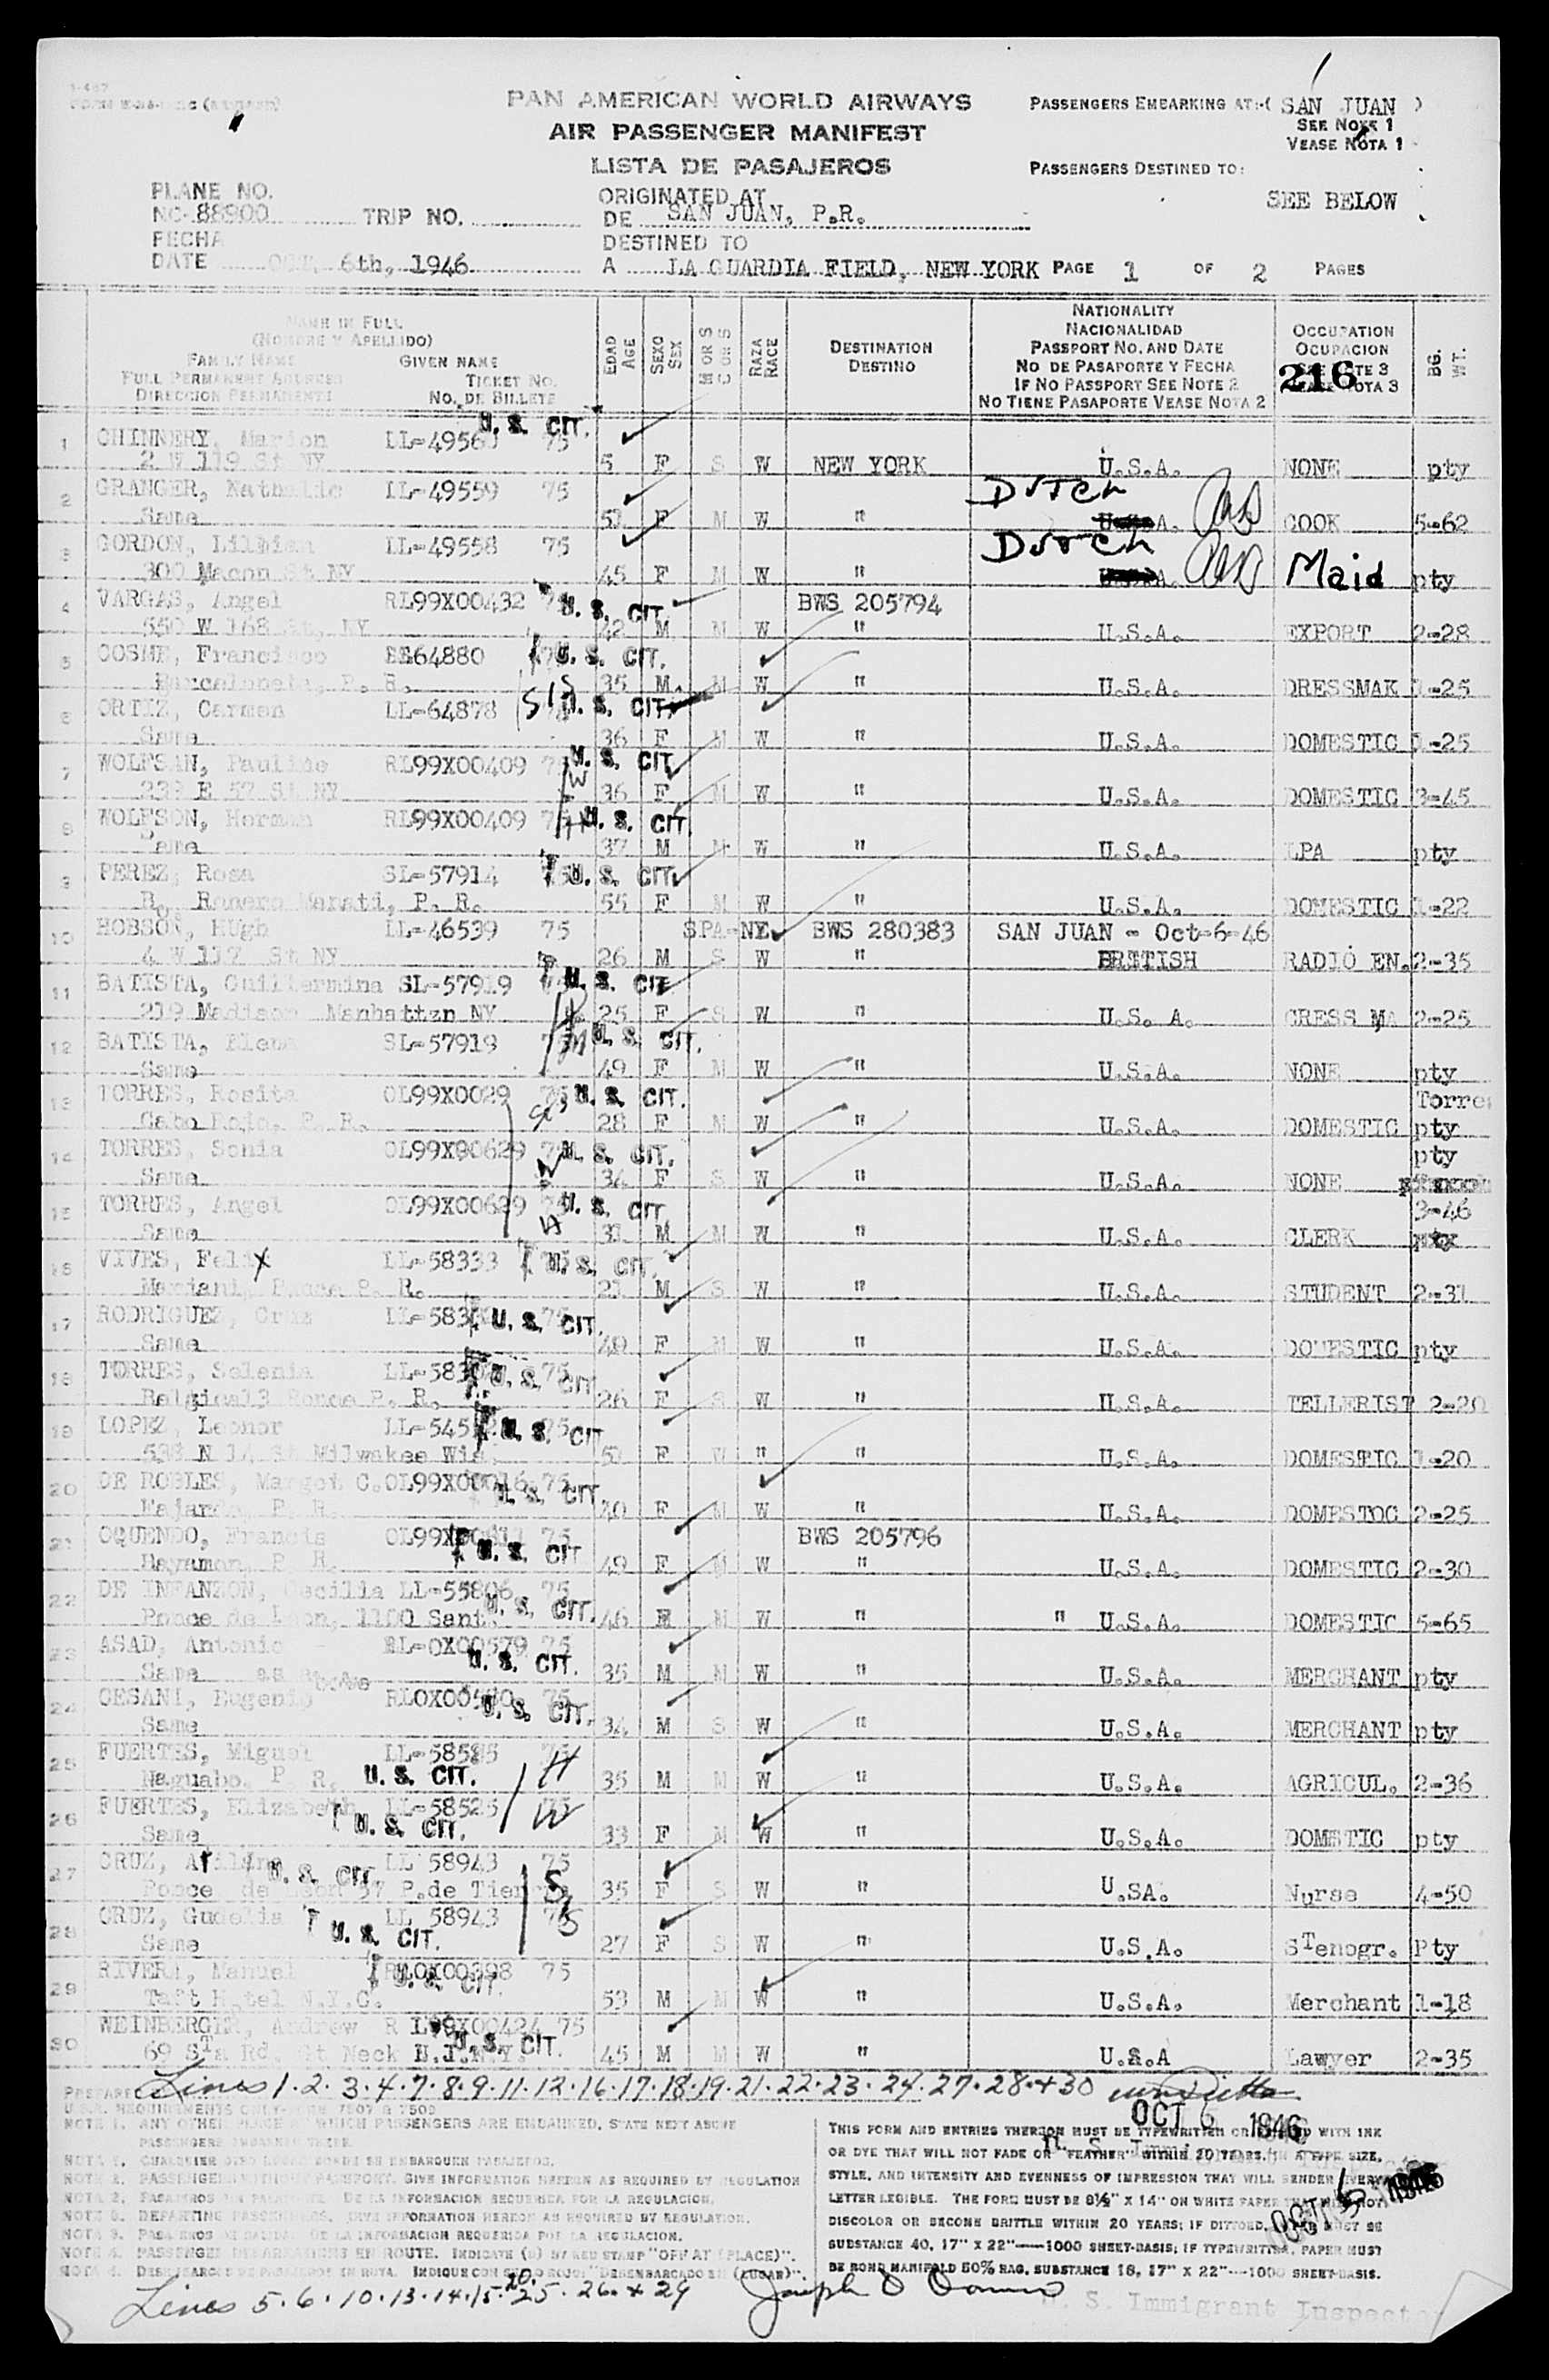 PAN AMERICAN WORLD AIRWAYS
AIR PASSENGER MANIFEST
LISTA DE PASAJEROS
PASSENGERS EMBARKING AT:-( SAN JUAN )
SEE NOTE 1
VEASE NOTA 1
PASSENGERS DESTINED TO:
SEE BELOW
PLANE NO.
NC-88900 TRIP NO.
ORIGINATED AT
DE SAN JUAN, P.R.
FECHA
DATE OCT. 6th, 1946
DESTINED TO
A LA GUARDIA FIELD, NEW YORK PAGE 1 OF 2 PAGES
NAME IN FULL
(NOMBRE Y APELLIDO)
FAMILY NAME GIVEN NAME
FULL PERMANENT ADDRESS TICKET NO.
DIRECCION PERMANENTE NO. DE BILLETE
EDAD AGE
SEXO SEX
M OR S
C OR S
RAZA RACE
DESTINATION
DESTINO
NATIONALITY
NACIONALIDAD
PASSPORT NO. AND DATE
NO DE PASAPORTE Y FECHA
IF NO PASSPORT SEE NOTE 2
NO TIENE PASAPORTE VEASE NOTA 2
OCCUPATION
OCUPACION
216
BG. WT.
1 CHINNERY, Marion LL-49560 75 U. S. CIT.
2 W 119 St NY 5 F S W NEW YORK U.S.A. NONE pty
2 GRANGER, Nathalie LL-49559 75 DUTCH
Same 51 F M W " COOK 5-62
3 GORDON, Lillian LL-49558 75 DUTCH
300 Macon St NY 45 F M W " Maid pty
4 VARGAS, Angel RL99X00432 75 U. S. CIT. BWS 205794
550 W 168 St, NY 42 M M W " U.S.A. EXPORT 2-28
5 COSME, Francisco 64880 75 U. S. CIT.
Barceloneta, P. R. 35 M. M W " U.S.A. DRESSMAK 1-25
6 ORTIZ, Carmen LL-64878 SIS U. S. CIT.
Same 36 F M W " U.S.A. DOMESTIC 1-25
7 WOLFSAN, Pauline RL99X00409 75 U. S. CIT.
239 E 57 St NY W 36 F M W " U.S.A. DOMESTIC 3-45
8 WOLFSON, Herman RL99X00409 75 H U. S. CIT.
Same 37 M M W " U.S.A. CPA pty
9 PEREZ, Rosa SL-57914 75 U. S. CIT.
B. Romero Manati, P. R. 55 F M W " U.S.A. DOMESTIC 1-22
10 HOBSON, HUgh LL-46539 75 SPA-NE BWS 280383 SAN JUAN - Oct-6-46
4 W 112 St NY 26 M S W " BRITISH RADIO EN. 2-35
11 BATISTA, Guillermina SL-57919 U. S. CIT.
219 Madison Manhattan NY 25 F S W " U.S. A. 2-25
12 BATISTA, Elena SL-57919 U. S. CIT.
Same 49 F M W " U.S.A. NONE pty
13 TORRES, Rosita OL99X0029 75 U. S. CIT. Torres
Cabo Rojo, P. R. 28 F M W " U.S.A. DOMESTIC pty
14 TORRES, Sonia OL99X00629 U. S. CIT. pty
Same 34 F S W " U.S.A. NONE
15 TORRES, Angel OL99X00629 U. S. CIT. 3-46
Same 31 M M W " U.S.A. CLERK pty
16 VIVES, Felix LL-58333 U. S. CIT.
Mariani, Ponce P. R. 21 M S W " U.S.A. STUDENT 2-31
17 RODRIGUEZ, Cruz 75 U. S. CIT.
Same 49 F M W " U.S.A. DOMESTIC pty
18 TORRES, Selenia 75 U. S. CIT.
Belgica 13 Ponce P. R. 26 F S W " U.S.A. TELLERIST 2-20
19 LOPEZ, Leonor 75 U. S. CIT.
N 14 St Milwakee Wis. 51 F W " " U.S.A. DOMESTIC 1-20
20 DE ROBLES, Margot C. OL99X00016 75 U. S. CIT.
Fajardo, P. R. 40 F M W " U.S.A. DOMESTOC 2-25
21 OQUENDO, Francis 75 U. S. CIT. BWS 205796
Bayamon, P. R. 49 F M W " U.S.A. DOMESTIC 2-30
22 DE INFANZON, Cecilia LL-55806 75 U. S. CIT.
Ponce de Leon, 1100 Sant. 46 F M W " " U.S.A. DOMESTIC 5-65
23 ASAD, Antonio RL-0X00579 75 U. S. CIT.
Same as above 35 M M W " U.S.A. MERCHANT pty
24 CESANI, Eugenio 75 U. S. CIT.
Same 34 M S W " U.S.A. MERCHANT pty
25 FUERTES, Miguel LL-58525 75 H
Naguabo, P. R. U. S. CIT. 35 M M W " U.S.A. AGRICUL. 2-36
26 FUERTES, Elizabeth LL-58525 75 W
Same U. S. CIT. 33 F M W " U.S.A. DOMSTIC pty
27 CRUZ, LL 58943 75 U. S. CIT.
Ponce de Leon 37 P.de Tierra 35 F S W " U.SA. Nurse 4-50
28 CRUZ, Gudelia LL 58943 75 SIS
Same U. S. CIT. 27 F S W " U.S.A. STenogr. Pty
29 RIVERA, Manuel RL0X00398 75
Taft Hotel N.Y.C. U. S. CIT. 53 M M W " U.S.A. Merchant 1-18
30 WEINBERGER, Andrew R L99X00424 75
69 STa Rd. Gt Neck U. S. CIT. 45 M M W " U.S.A Lawyer 2-35
Lines 1·2·3·4·7·8·9·11·12·16·17·18·19·21·22·23·24·27·28·+30
OCT 6 1946
NOTE 1. ANY OTHER PLACE AT WHICH PASSENGERS ARE EMBARKED, STATE NEXT ABOVE
PASSENGERS EMBARKED THERE.
NOTE 2. PASSENGERS WITHOUT PASSPORT. GIVE INFORMATION HEREON AS REQUIRED BY REGULATION
NOTA 2. PASAJEROS SIN PASAPORTE. DE LA INFORMACION REQUERIDA POR LA REGULACION.
NOTE 3. DEPARTING PASSENGERS. GIVE INFORMATION HEREON AS REQUIRED BY REGULATION.
NOTA 3. PASAJEROS DE SALIDA. DE LA INFORMACION REQUERIDA POR LA REGULACION.
NOTE 4. PASSENGER DEBARKATIONS EN ROUTE. INDICATE (B) BY RED STAMP "OFF AT (PLACE)".
THIS FORM AND ENTRIES THEREON MUST BE TYPEWRITTEN OR PRINTED WITH INK
OR DYE THAT WILL NOT FADE OR "FEATHER" WITHIN 20 YEARS. IN A TYPE SIZE,
STYLE, AND INTENSITY AND EVENNESS OF IMPRESSION THAT WILL RENDER EVERY
LETTER LEGIBLE. THE FORM MUST BE 8½" X 14" ON WHITE PAPER THAT WILL NOT
DISCOLOR OR BECOME BRITTLE WITHIN 20 YEARS; IF DITTOED, PAPER MUST BE
SUBSTANCE 40, 17" X 22"—1000 SHEET-BASIS; IF TYPEWRITTEN, PAPER MUST
BE BOND MANIFOLD 50% RAG, SUBSTANCE 16, 17" X 22"—1000 SHEET-BASIS.
Lines 5·6·10·13·14·15·20·25·26·+29
U. S. Immigrant Inspector